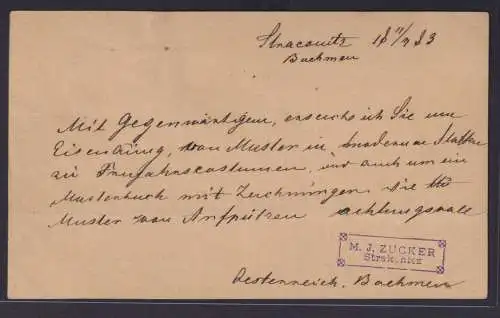 Straconitz 18 11/9 83
Bachmen
Mit Gegenwärtigem, ersuche ich Sie um
Eisendung, von Muster in moderne Stoffen
zu Frujahrscostumen, und auch um ein
Musterbuch mit Zeichnungen, die
Muster von Aufputzen achtungsvoll
M. J. ZUCKER
Strakonic
Oesterreich. Bachmen